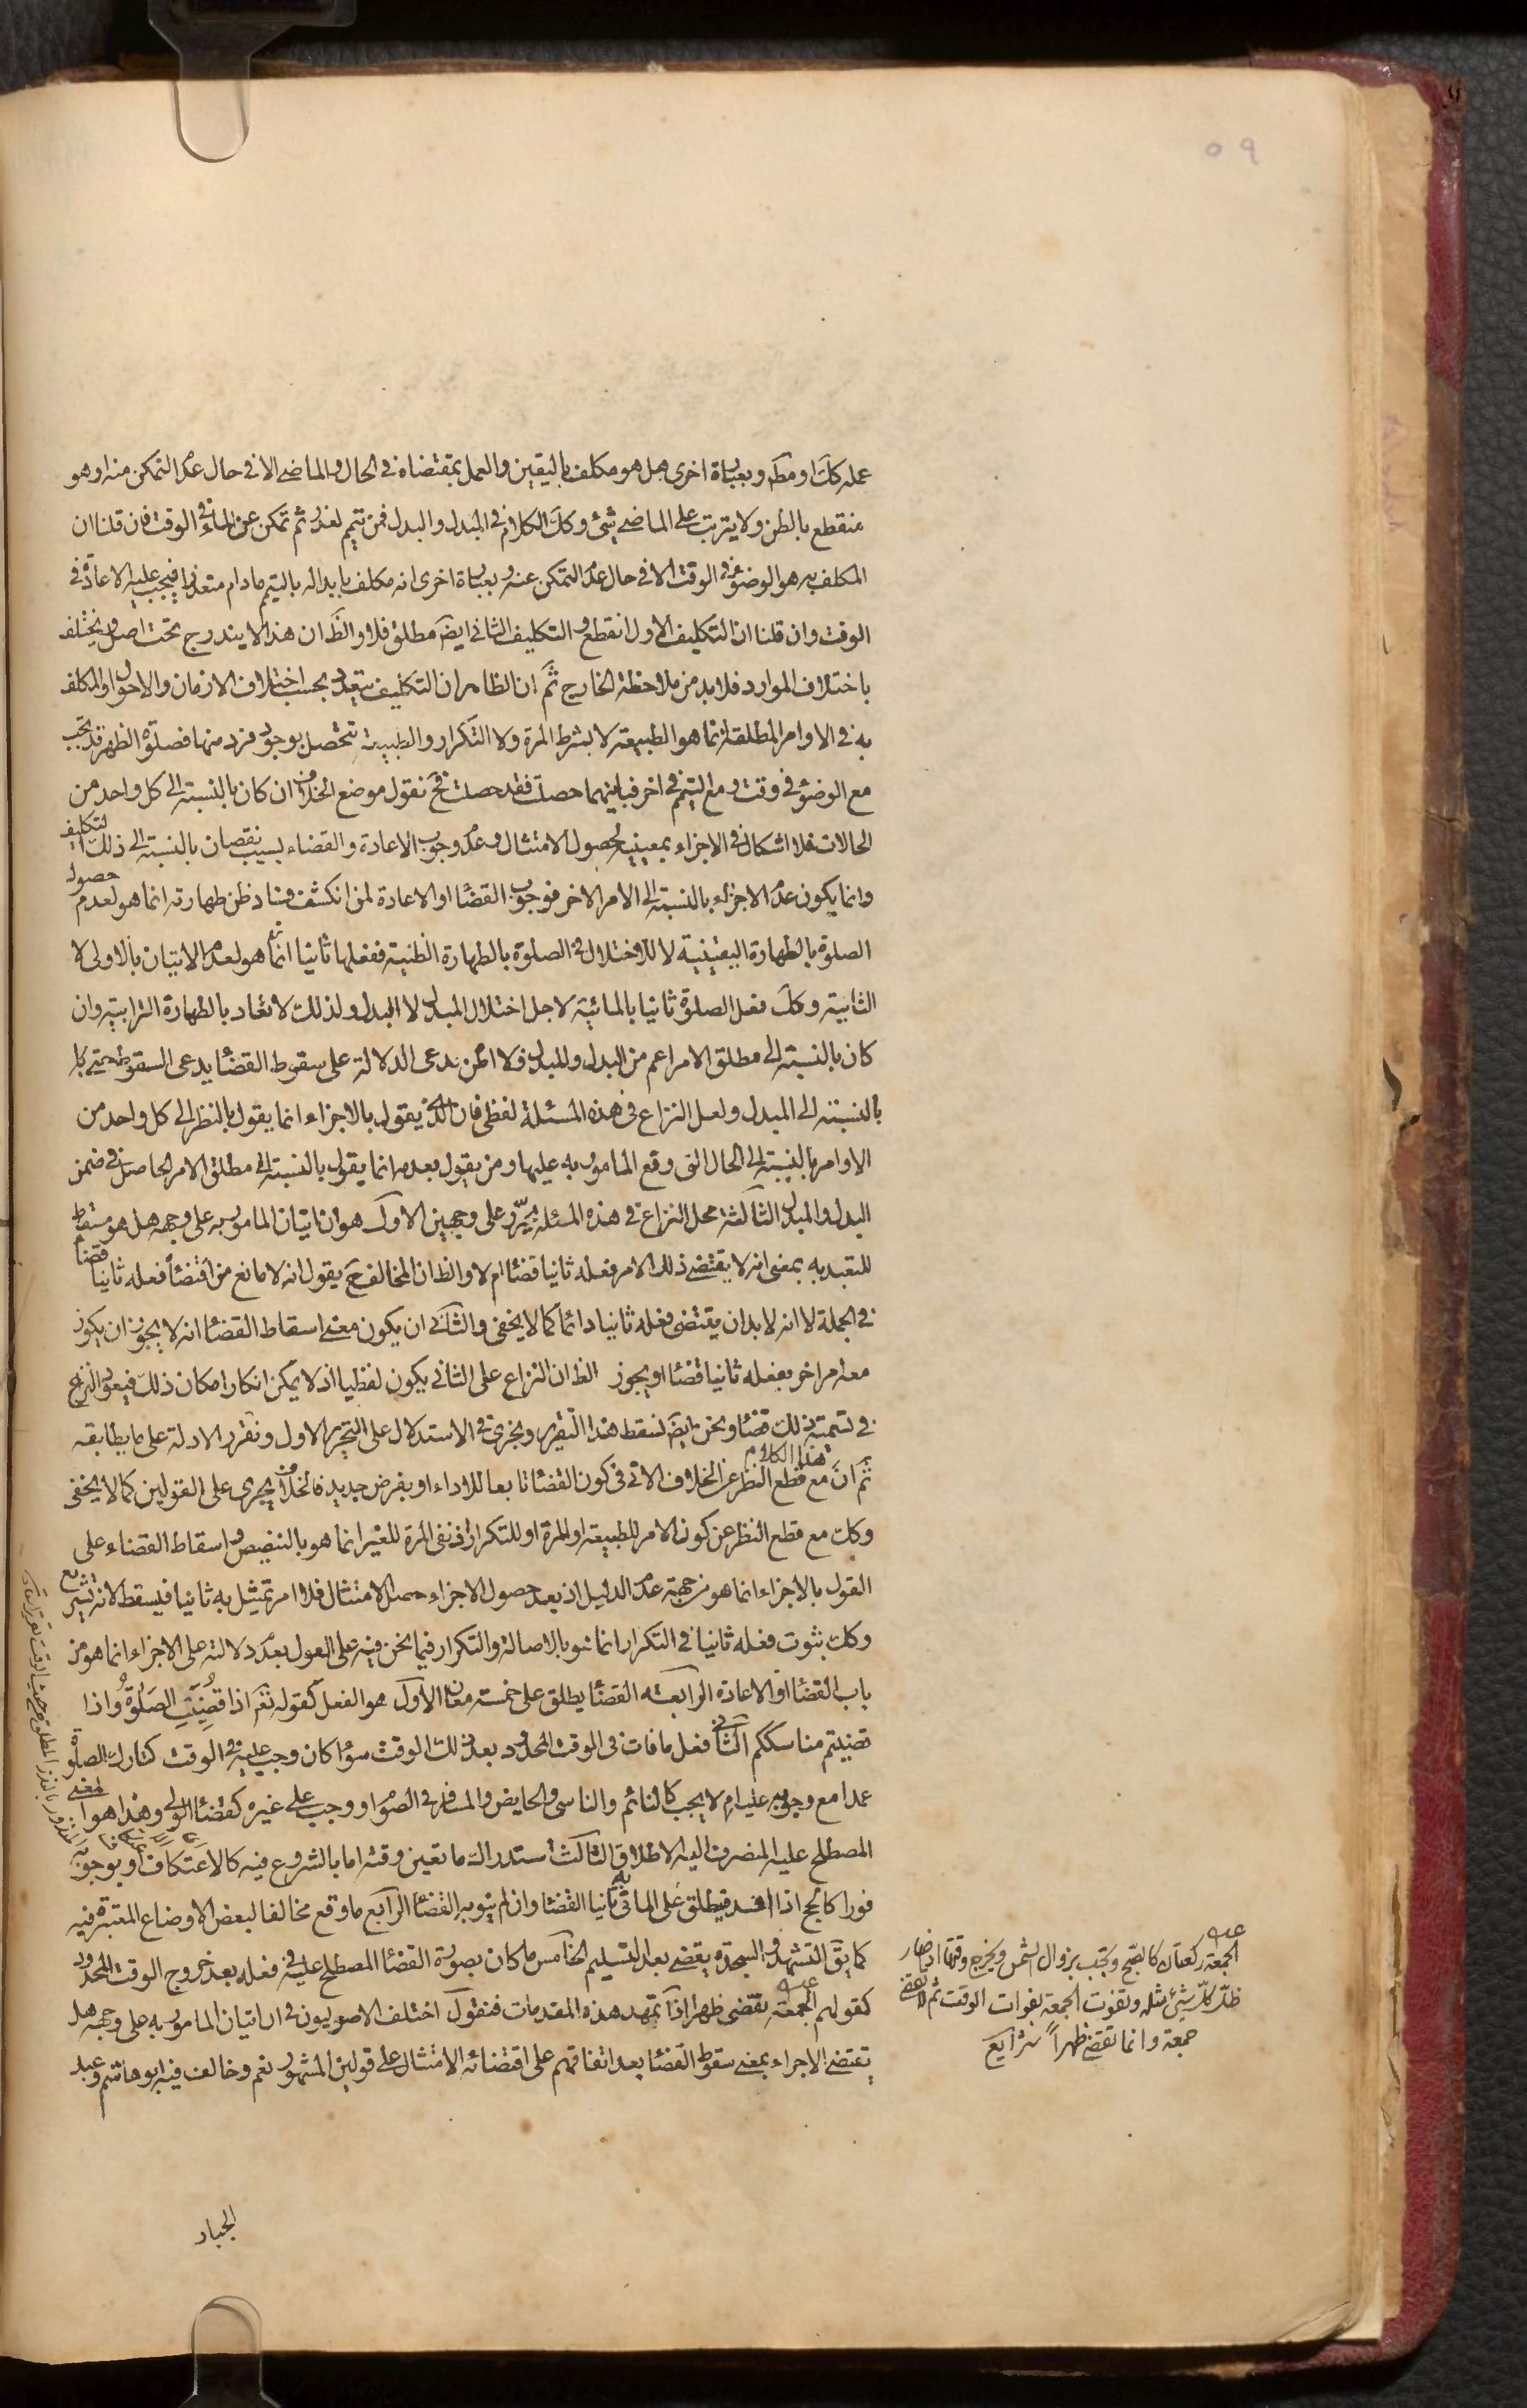 ٥٩
عمله كك او مطلقا وبعبارة اخرى هل هو مكلف باليقين والعمل بمقتضاه في الحال والماضي الا في حال عدم التمكن منه او هو
منقطع بالظن ولا يترتب على الماضي شئ وكك الكلام في المبدل والبدل فمن تيمم لعذر ثم تمكن عن الماء في الوقت فان قلنا ان
المكلف به هو الوضوء في الوقت الا في حال عدم التمكن عنه وبعبارة اخرى انه مكلف بابداله بالتيمم مادام متعذرا فيجب عليه الاعادة في
الوقت وان قلنا ان التكليف الاول انقطع والتكليف الثاني ايضا مطلق فلا والظ ان هذا لا يندرج تحت اصل ويختلف
باختلاف الموارد فلا بد من ملاحظة الخارج ثم ان الظاهر ان التكليف يتعدد بحسب اختلاف الازمان والاحوال والمكلف
به في الاوامر المطلقة انما هو الطبيعة لا بشرط المرة ولا التكرار والطبيعة تتحصل بوجود فرد منها فصلوة الظهر قد تجب
مع الوضوء في وقت ومع التيمم في اخر فبايتهما حصلت فقد حصلت فح نقول موضع الخلاف ان كان بالنسبة الى كل واحد من
الحالات فلا اشكال في الاجزاء بمعنييه لحصول الامتثال وعدم وجوب الاعادة والقضاء بسبب نقصان بالنسبة الى ذلك التكليف
وانما يكون عدم الاجزاء بالنسبة الى الامر الاخر فوجوب القضاء او الاعادة لمن انكشف فساد ظن طهارته انما هو لعدم حصول
الصلوة بالطهارة اليقينية لا للاختلال في الصلوة بالطهارة الظنية ففعلها ثانيا انما هو لعدم الاتيان بالاولى لا
الثانية وكك فعل الصلوة ثانيا بالمائية لاجل اختلال المبدل لا البدل ولذلك لا تعاد بالطهارة الترابية وان
كان بالنسبة الى مطلق الامر اعم من البدل والمبدل فلا اظن من يدعى الدلالة على سقوط القضاء يدعى السقوط حتى
بالنسبة الى المبدل ولعل النزاع في هذه المسئلة لفظي فان الذي يقول بالاجزاء انما يقول بالنظر الى كل واحد من
الاوامر بالنسبة الى الحال التي وقع المامور به عليها ومن يقول بعدمه انما يقول بالنسبة الى مطلق الامر الحاصل في ضمن
البدل والمبدل الثالثة محل النزاع في هذه المسئلة يحرر على وجهين الاول هو ان اتيان المامور به على وجهه هل هو مسقط
للتعبد به بمعنى انه لا يقتضي ذلك الامر فعله ثانيا قضاء ام لا والظ ان المخالف ح يقول انه لا مانع من اقتضائه فعله ثانيا قضاء
في الجملة لا انه لا بد ان يقتضي فعله ثانيا دائما كما لا يخفى والثاني ان يكون معنى اسقاط القضاء انه لا يجوز ان يكون
معه امر اخر بفعله ثانيا قضاء او يجوز الظ ان النزاع على الثاني يكون لفظيا اذ لا يمكن انكار امكان ذلك فيعود النزاع
في تسمية ذلك قضاء ونحن ايضا نسقط هذا التقرير ونجري في الاستدلال على التحرير الاول ونقرر الادلة على ما يطابقه
ثم ان هذا الكلام مع قطع النظر عن الخلاف الاتي في كون القضاء تابعا للاداء او بفرض جديد فالخلاف يجري على القولين كما لا يخفى
وكك مع قطع النظر عن كون الامر للطبيعة او المرة او للتكرار اذ نفي المرة للغير انما هو بالتنصيص واسقاط القضاء على
القول بالاجزاء انما هو من جهة عدم الدليل اذ بعد حصول الاجزاء حصل الامتثال فلا امر تمتثل به ثانيا فيسقط لانه تشريع
وكك ثبوت فعله ثانيا في التكرار انما هو بالاصالة والتكرار فيما نحن فيه على القول بعدم دلالته على الاجزاء انما هو من
باب القضاء او الاعادة الرابعة القضاء يطلق على خمسة معان الاول هو الفعل كقوله تعم اذا قُضِيَتِ الصَلوةُ واذا
قضيتم مناسككم الثاني فعل ما فات في الوقت المحدود بعد ذلك الوقت سواء كان وجب عليه في الوقت كتارك الصلوة
عمدا مع وجوبه عليه ام لا يجب كالنائم والناسي والحايض والمسافر في الصوم او وجب على غيره كقضاء الولي وهذا هو المعنى
المصطلح عليه المنصرف اليه الاطلاق الثالث استدراك ما تعين وقته اما بالشروع فيه كالاعتكاف او بوجوبه
فورا كالحج اذا افسد فيطلق على الماتي به ثانيا القضاء وان لم ينو به القضاء الرابع ما وقع مخالفا لبعض الاوضاع المعتبرة فيه
كما يق التشهد والسجدة يقضى بعد التسليم الخامس ما كان بصورة القضاء المصطلح عليه في فعله بعد خروج الوقت المحدود
كقولهم الجمعة تقضى ظهرا اذا تمهد هذه المقدمات فنقول اختلف الاصوليون في ان اتيان المامور به على وجهه هل
يقتضي الاجزاء بمعنى سقوط القضاء بعد اتفاقهم على اقتضائه الامتثال على قولين المشهور نعم وخالف فيه ابو هاشم وعبد
الجبار
الجمعة ركعتان كالصبح وتجب بزوال الشمس ويخرج وقتها اذا صار
ظل كل شئ مثله وتفوت الجمعة بفوات الوقت ثم لا تقضى
جمعة وانما تقضى ظهراً شرايع